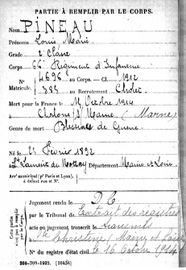 PARTIE À REMPLIR PAR LE CORPS.
Nom PINEAU
Prénoms Louis Marie
Grade 2e Classe
Corps 66e Régiment d'Infanterie
N° 4696 au Corps. — Cl. 1912
Matricule. 388 au Recrutement Cholet
Mort pour la France le Octobre 1914
à Châlons s/ Marne (Marne)
Genre de mort Blessures de Guerre
Né le Février 1892
à St Laurent du Mottay Département Maine et Loire
Arrt municipal (pr Paris et Lyon),
à défaut rue et N°.
Cette partie
Jugement rendu le D C
par le Tribunal de Extrait des registres
acte ou jugement transcrit le transmis
à Ste Christine (Maine et Loire)
N° du registre d'état civil le 16 Octobre 1914